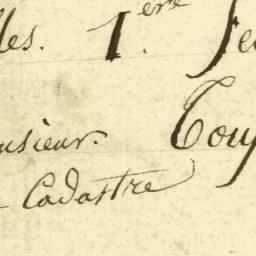 lles. 1.ère Fe
onsieur. Touj
Cadastre